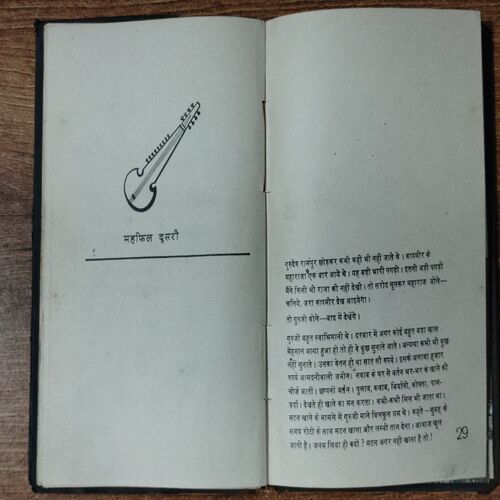 महफिल दूसरी
गुरुदेव रामपुर छोड़कर कभी कहीं भी नहीं जाते थे। काश्मीर के
महाराजा एक बार आये थे। यह बडी भारी पगडी। इतनी बडी पगडी
मैंने किसी भी राजा की नहीं देखी। तो सरोद सुनकर महाराज बोले—
चलिये, जरा काश्मीर देख आइयेगा।
तो गुरुजी बोले—बाद में देखेंगे।
गुरुजी बहुत स्वाभिमानी थे। दरबार में अगर कोई बहुत बडा खास
मेहमान आया हुआ हो तो ही वे कुछ सुनाते थे। अन्यथा कभी भी कुछ
नहीं सुनाते। उनका वेतन ही था सात सौ रुपये। इसके अलावा हजार
रुपये आमदनीवाली जमीन। नवाब के घर से बर्तन भर-भर के खाने की
चीजें आतीं। छप्पनों बर्तन। पुलाव, कवाब, बिर्यानी, कोफ्ता, पान-
जर्दा। देखते ही खाने का मन करता। कभी-कभी मिल भी जाता था।
मटन खाने के मामले में गुरुजी माने बिलकुल यम थे। कहते—सुबह के
समय रोटी के साथ मटन खाना और लम्बी तान देना। आवाज खुल
जाती है। जनम लिया ही क्यों? मटन अगर नहीं खाना है तो!
29